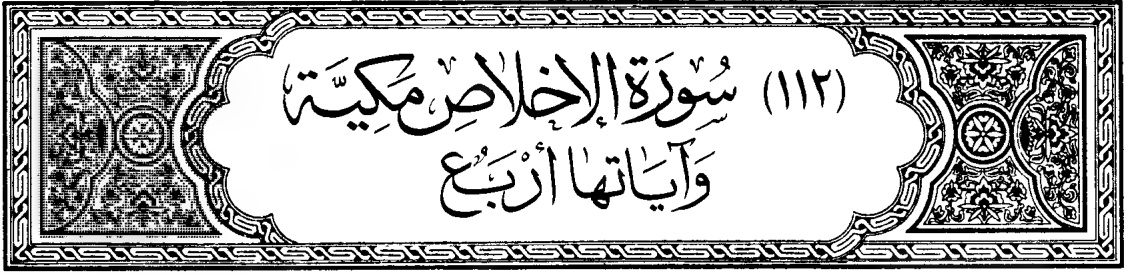 (١١٢) سُورَةُ الإِخْلَاصِ مَكِيَّة
وَآيَاتهَا أَرْبَع